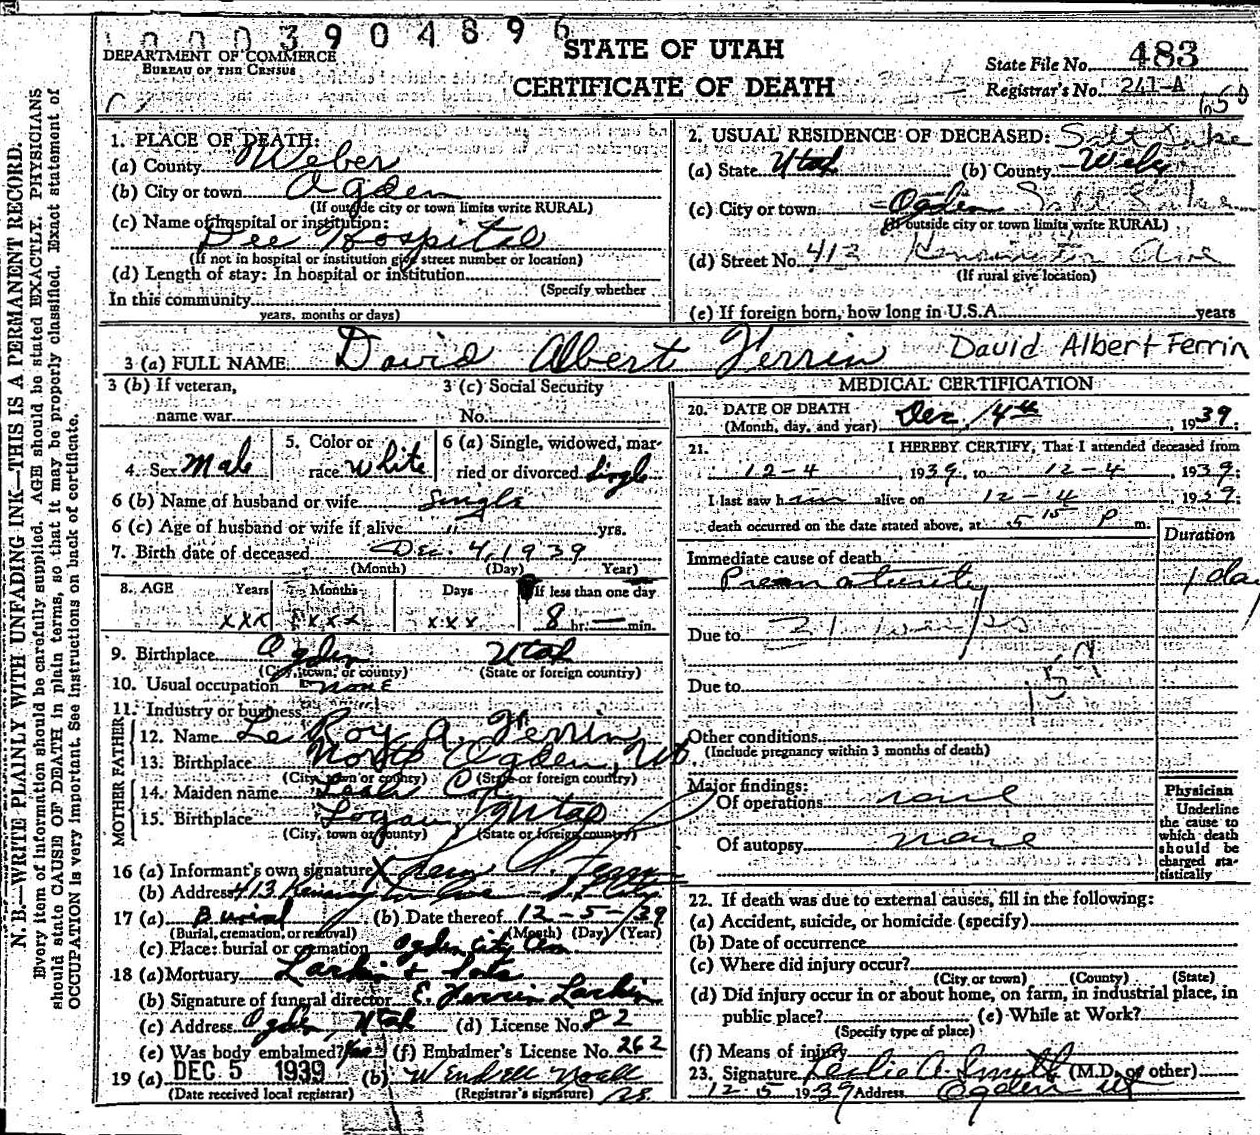 0003904896
DEPARTMENT OF COMMERCE
BUREAU OF THE CENSUS
STATE OF UTAH
CERTIFICATE OF DEATH
State File No. 483
Registrar's No. 241-A
N. B.—WRITE PLAINLY WITH UNFADING INK—THIS IS A PERMANENT RECORD.
Every item of information should be carefully supplied. AGE should be stated EXACTLY. PHYSICIANS
should state CAUSE OF DEATH in plain terms, so that it may be properly classified. Exact statement of
OCCUPATION is very important. See instructions on back of certificate.
1. PLACE OF DEATH:
(a) County Weber
(b) City or town Ogden
(If outside city or town limits write RURAL)
(c) Name of hospital or institution:
Dee Hospital
(If not in hospital or institution give street number or location)
(d) Length of stay: In hospital or institution
(Specify whether
In this community
years, months or days)
2. USUAL RESIDENCE OF DECEASED: Salt Lake
(a) State Utah (b) County Web
(c) City or town Ogden Salt Lake
(If outside city or town limits write RURAL)
(d) Street No. 413 Kensington Ave
(If rural give location)
(e) If foreign born, how long in U.S.A. years
3 (a) FULL NAME David Albert Ferrin David Albert Ferrin
3 (b) If veteran,
name war
3 (c) Social Security
No.
4. Sex Male
5. Color or
race White
6 (a) Single, widowed, mar-
ried or divorced Single
6 (b) Name of husband or wife Single
6 (c) Age of husband or wife if alive " yrs.
7. Birth date of deceased Dec. 4, 1939
(Month) (Day) Year)
8. AGE Years Months Days If less than one day
xxx xxxx xxx 8 hr. — min.
9. Birthplace Ogden Utah
(City, town, or county) (State or foreign country)
10. Usual occupation none
11. Industry or business
FATHER
12. Name Le Roy A. Ferrin
13. Birthplace North Ogden, Ut.
(City, town or county) (State or foreign country)
MOTHER
14. Maiden name
15. Birthplace Logan, Utah
(City, town or county) (State or foreign country)
16 (a) Informant's own signature X
(b) Address 413 Kensington Ave S. L. City
17 (a) Burial (b) Date thereof 12-5-39
(Burial, cremation, or removal) (Month) (Day) (Year)
(c) Place: burial or cremation Ogden City Cem
18 (a) Mortuary Larkin & Sons
(b) Signature of funeral director E. Ferrin Larkin
(c) Address Ogden, Utah (d) License No. 82
(e) Was body embalmed? Yes (f) Embalmer's License No. 262
19 (a) DEC 5 1939 (b) Wendell Noall
(Date received local registrar) (Registrar's signature)
MEDICAL CERTIFICATION
20. DATE OF DEATH
(Month, day, and year) Dec, 4th, 1939;
21. I HEREBY CERTIFY, That I attended deceased from
12-4, 1939, to 12-4, 1939;
I last saw him alive on 12-4, 1939;
death occurred on the date stated above, at 5 15 P m.
Duration
Immediate cause of death
Prematurity 1 day
Due to 31 weeks
Due to
159
Other conditions
(Include pregnancy within 3 months of death)
Major findings:
Of operations none
Of autopsy none
Physician
Underline
the cause to
which death
should be
charged sta-
tistically
22. If death was due to external causes, fill in the following:
(a) Accident, suicide, or homicide (specify)
(b) Date of occurrence
(c) Where did injury occur?
(City or town) (County) (State)
(d) Did injury occur in or about home, on farm, in industrial place, in
public place? (e) While at Work?
(Specify type of place)
(f) Means of injury
23. Signature Leslie A. Smith (M.D. or other)
12-15 1939 Address Ogden Ut